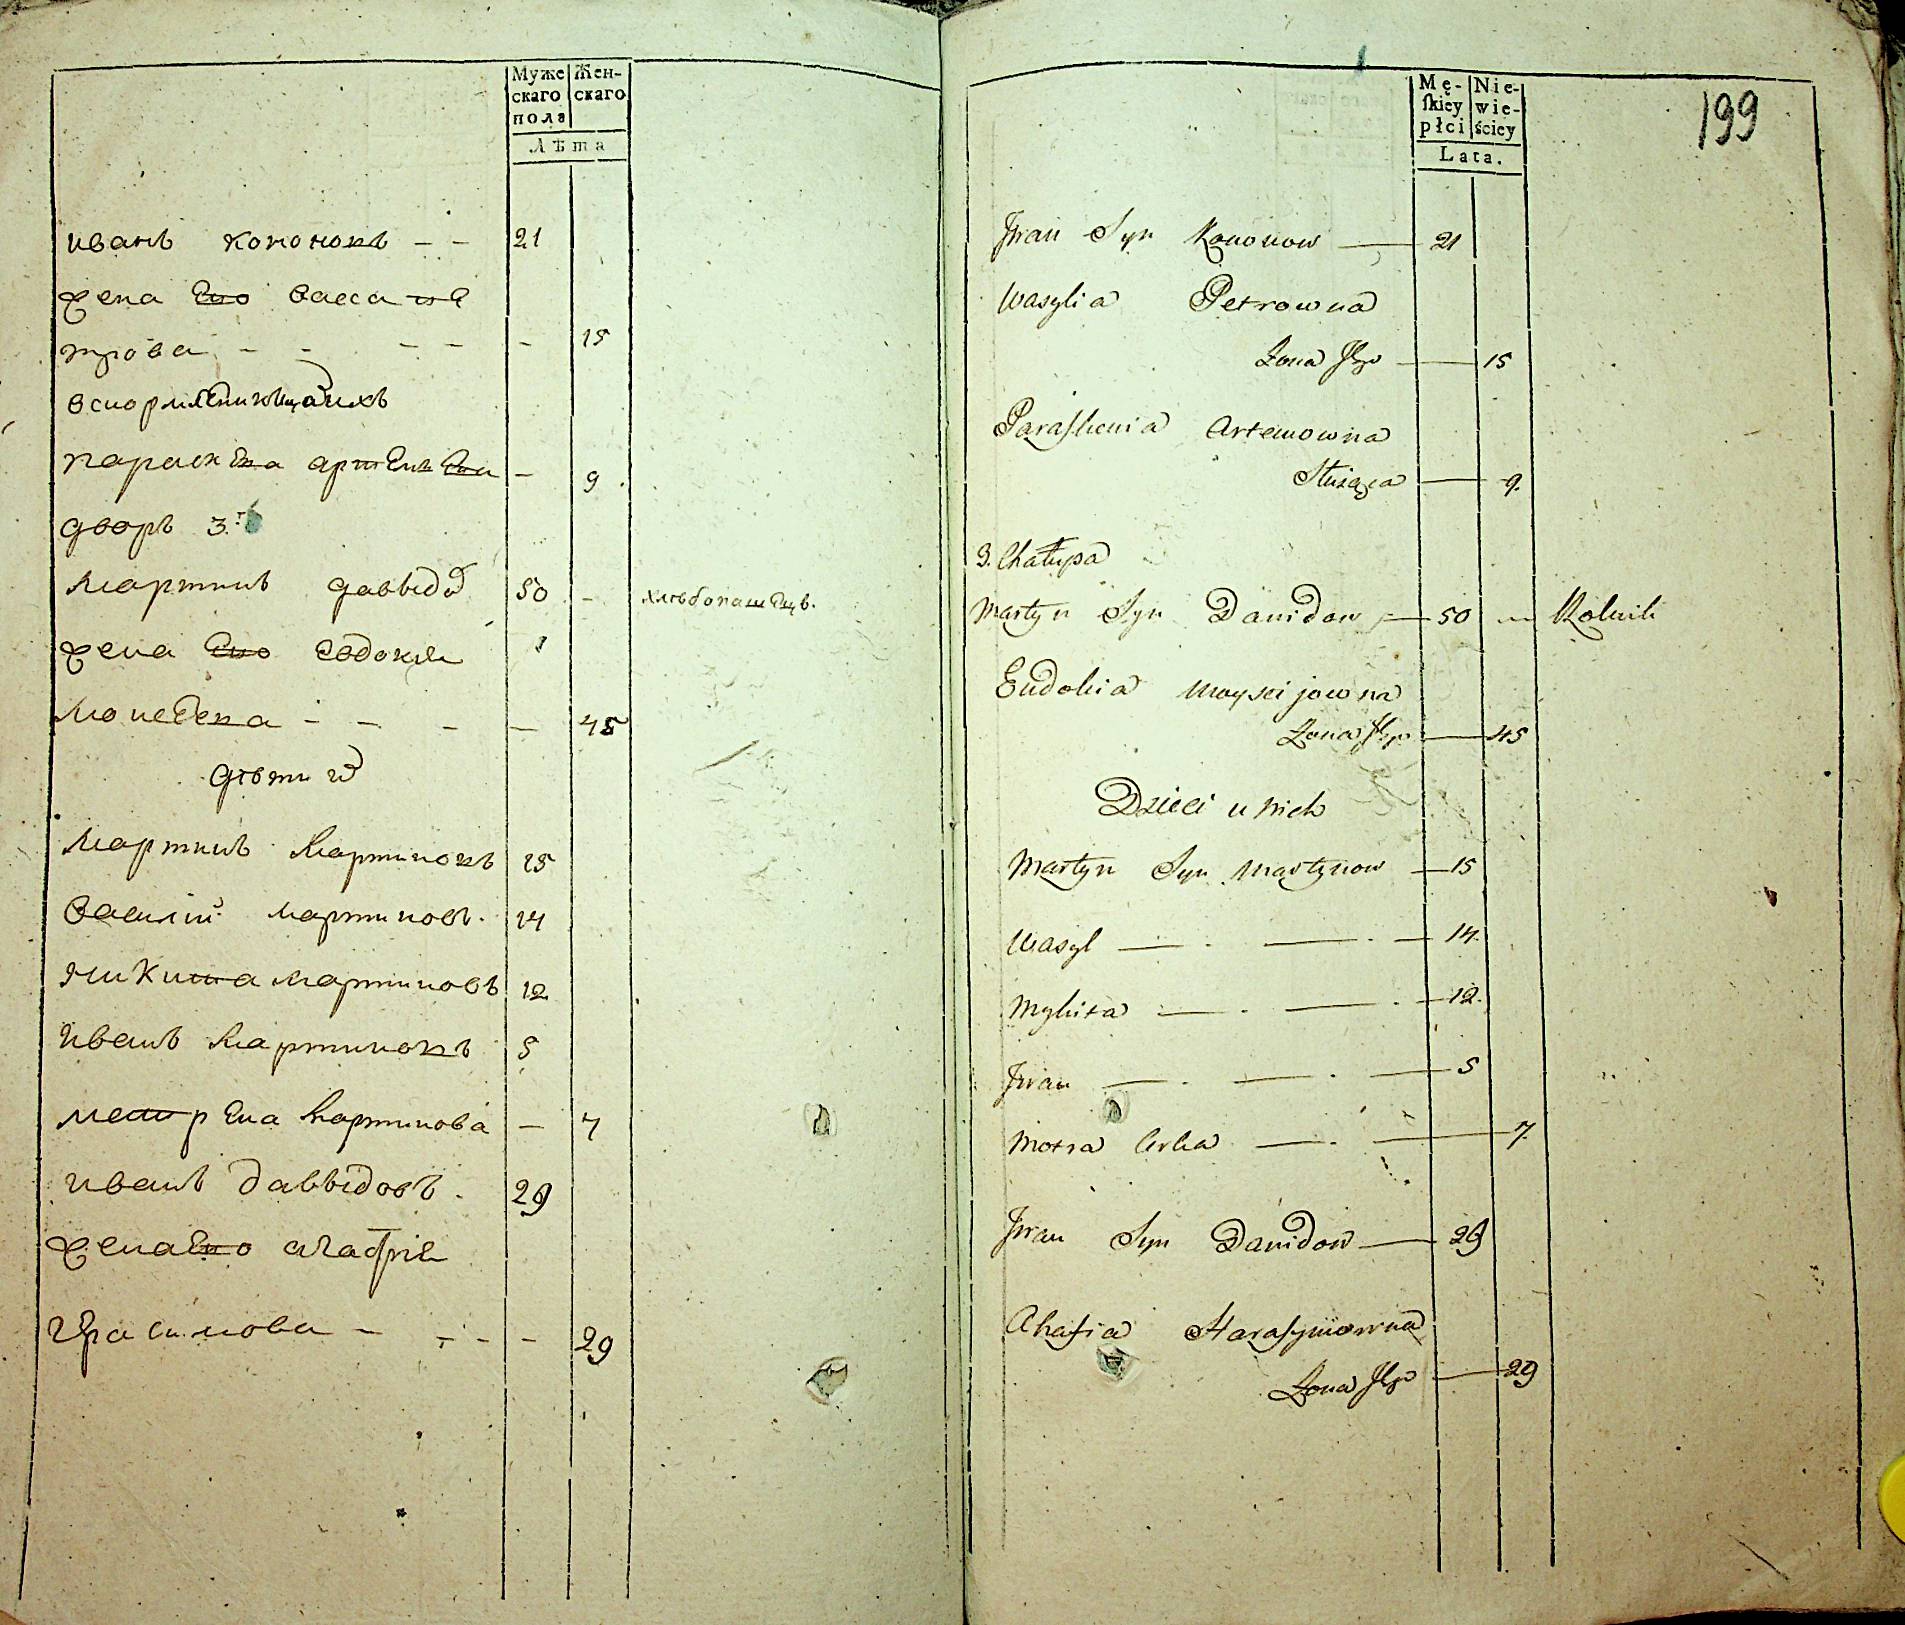 Муже Жен-
скаго скаго
пола
Лѣта
иванъ кононовъ - - 21
жена Его васса пе
трова - - - - - 15
параскева артемьева - 9
дворъ 3.й
мартинъ давыдо 50 - хлѣбопашецъ.
жена Его Евдокия
моисеева - - - - 45
дѣти и
мартинъ мартиновъ 15
василий мартиновъ. 14
никита мартиновъ 12
иванъ мартиновъ 5
метрена мартинова - 7
иванъ давыдовъ. 29
жена Его агафия
герасимова - - - - 29
199
Mę- Nie-
ſkiey wie-
płci ściey
Lata.
Jwan Syn Kononow — 21
Wasylia Petrowna
Żona Jego — 15
Paraſkewia Artemowna
Służąca — 9.
3. Chałupa
Martyn Syn Dawidow — 50 — Rolnik
Eudokia Moyseijowna
Żona Jego — 45
Dzieci u nich
Martyn Syn Martynow — 15
Wasyl — . — . — 14.
Mykita — . — . — 12.
Jwan — . — . — 5
Motra Corka — . — 7.
Jwan Syn Dawidow — 29
Ahafia Haraſymowna
Żona Jego — 29